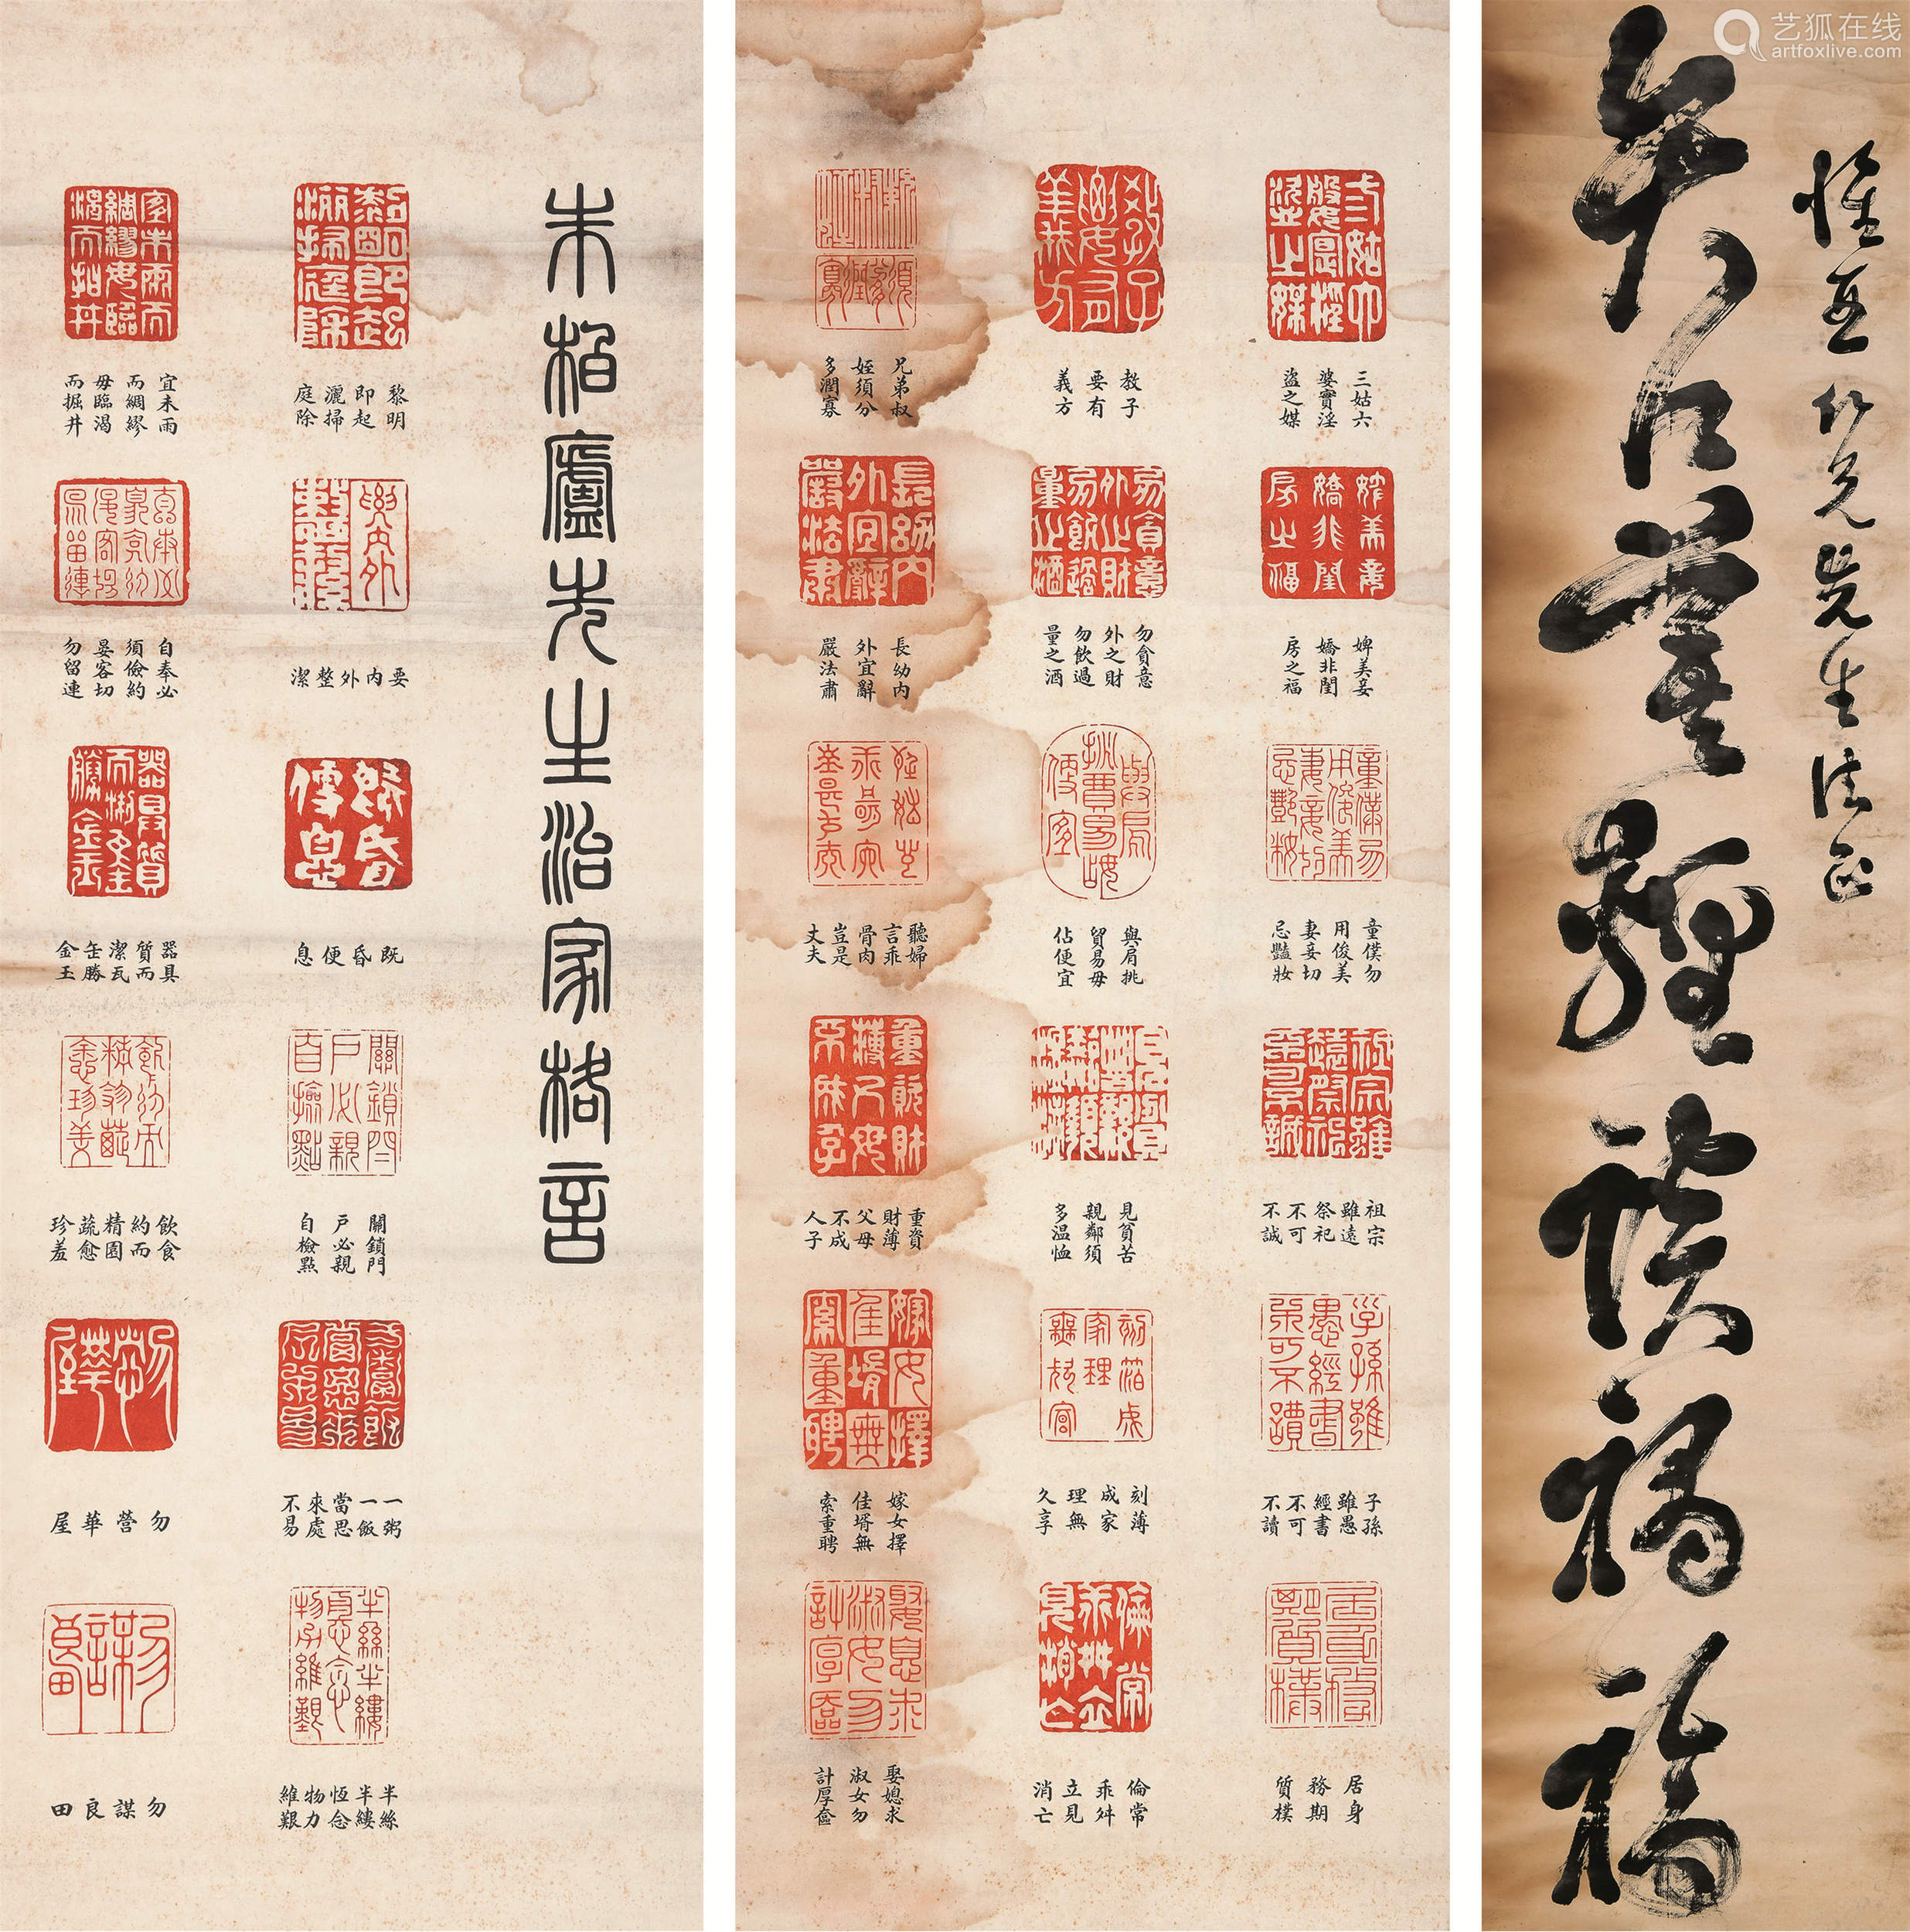 艺狐在线
artfoxlive.com
朱柏廬先生治家格言
黎明
即起
灑掃
庭除
要内外整潔
既昏便息
關鎖門
戶必親
自檢點
一粥
一飯
當思
來處
不易
半絲
半縷
恆念
物力
維艱
宜未雨
而綢繆
毋臨渴
而掘井
自奉必
須儉約
宴客切
勿留連
器具
質而
潔瓦
缶勝
金玉
飲食
約而
精園
蔬愈
珍羞
勿營華屋
勿謀良田
三姑六
婆實淫
盜之媒
婢美妾
嬌非閨
房之福
童僕勿
用俊美
妻妾切
忌豔妝
祖宗
雖遠
祭祀
不可
不誠
子孫
雖愚
經書
不可
不讀
居身
務期
質樸
教子
要有
義方
勿貪意
外之財
勿飲過
量之酒
與肩挑
貿易毋
佔便宜
見貧苦
親鄰須
多溫恤
刻薄
成家
理無
久享
倫常
乖舛
立見
消亡
兄弟叔
姪須分
多潤寡
長幼内
外宜辭
嚴法肅
聽婦
言乖
骨肉
豈是
丈夫
重資
財薄
父母
不成
人子
嫁女擇
佳壻無
索重聘
娶媳求
淑女勿
計厚奩
仁兄先生法正